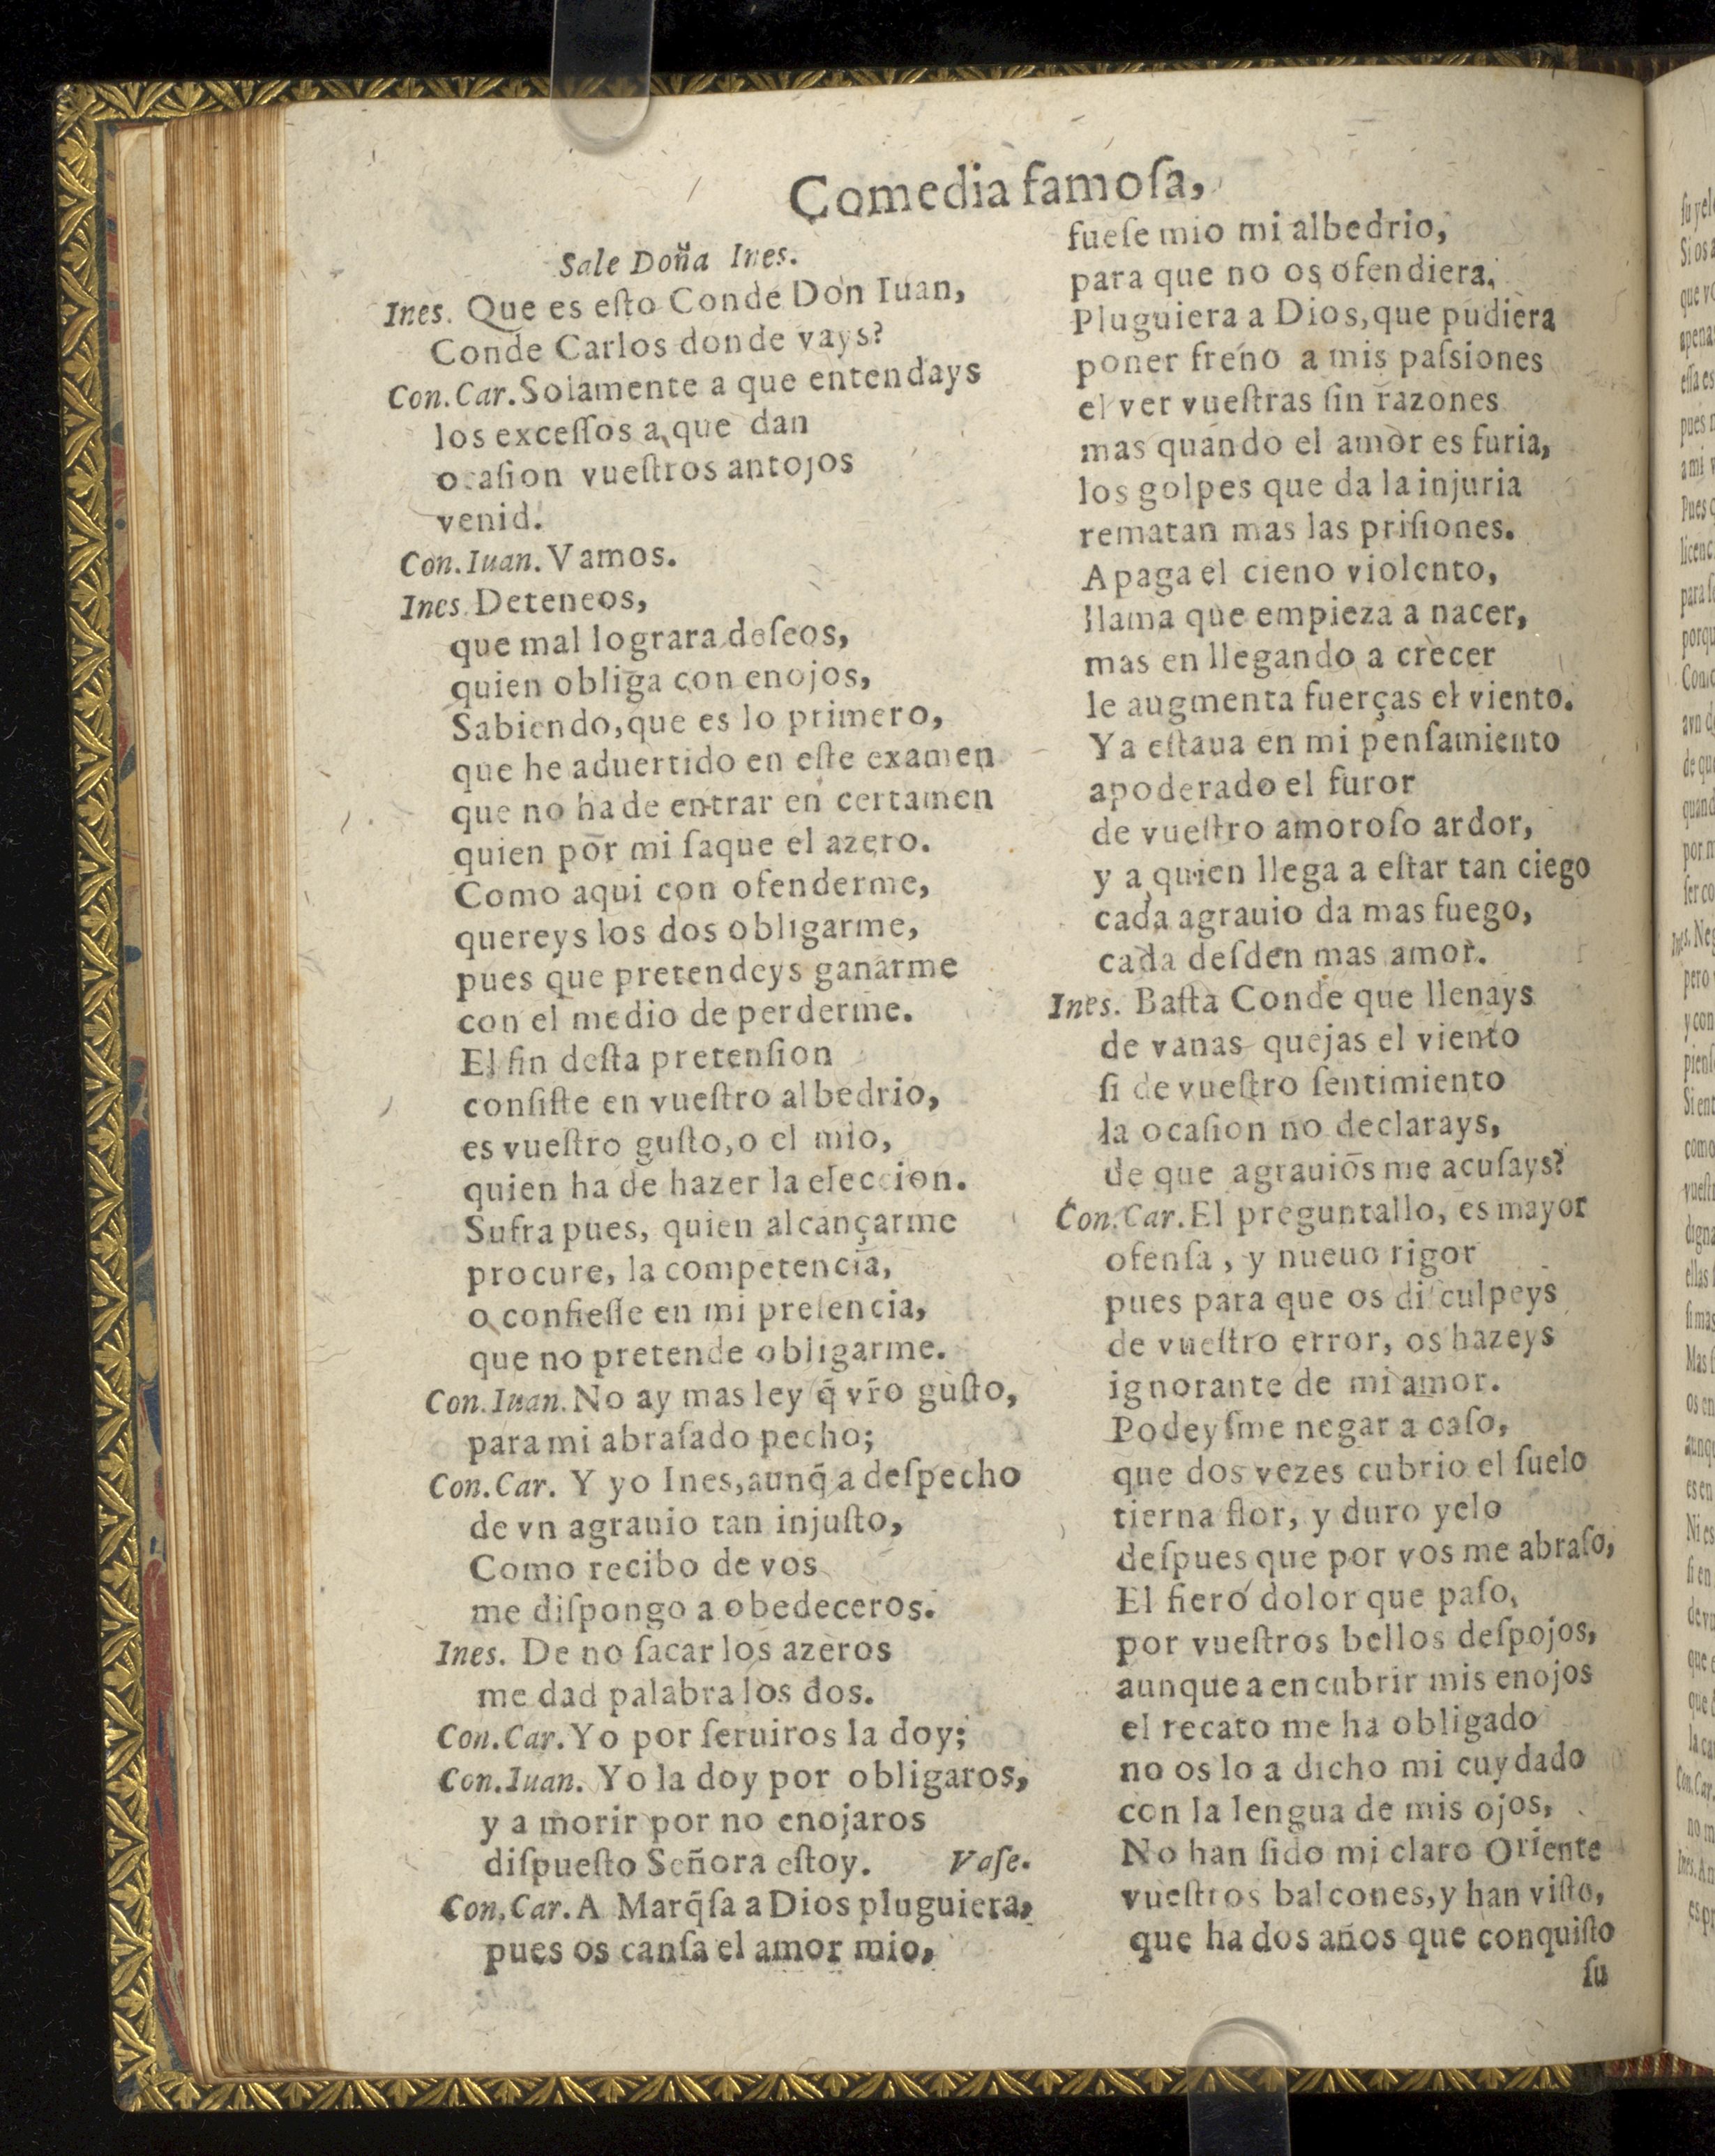 Comedia famoſa,
Sale Doña Ines.
Ines. Que es eſto Conde Don Iuan,
Conde Carlos donde vays?
Con.Car. Solamente a que entendays
los exceſſos a que dan
ocaſion vueſtros antojos
venid.
Con.Iuan. Vamos.
Ines. Deteneos,
que mal lograra deſeos,
quien obliga con enojos,
Sabiendo, que es lo primero,
que he aduertido en eſte examen
que no ha de entrar en certamen
quien por mi ſaque el azero.
Como aqui con ofenderme,
quereys los dos obligarme,
pues que pretendeys ganarme
con el medio de perderme.
El fin deſta pretenſion
conſiſte en vueſtro albedrio,
es vueſtro guſto, o el mio,
quien ha de hazer la eleccion.
Sufra pues, quien alcançarme
procure, la competencia,
o confieſſe en mi preſencia,
que no pretende obligarme.
Con.Iuan. No ay mas ley q̃ vr̃o guſto,
para mi abraſado pecho;
Con.Car. Y yo Ines, aunq̃ a deſpecho
de vn agrauio tan injuſto,
Como recibo de vos
me diſpongo a obedeceros.
Ines. De no ſacar los azeros
me dad palabra los dos.
Con.Car. Yo por ſeruiros la doy;
Con.Iuan. Yo la doy por obligaros,
y a morir por no enojaros
diſpueſto Señora eſtoy. Vaſe.
Con.Car. A Marq̃ſa a Dios pluguiera,
pues os canſa el amor mio,
fueſe mio mi albedrio,
para que no os ofendiera.
Pluguiera a Dios, que pudiera
poner freno a mis paſsiones
el ver vueſtras ſin razones
mas quando el amor es furia,
los golpes que da la injuria
rematan mas las priſiones.
Apaga el cieno violento,
llama que empieza a nacer,
mas en llegando a crecer
le augmenta fuerças el viento.
Ya eſtaua en mi penſamiento
apoderado el furor
de vueſtro amoroſo ardor,
y a quien llega a eſtar tan ciego
cada agrauio da mas fuego,
cada deſden mas amor.
Ines. Baſta Conde que llenays
de vanas quejas el viento
ſi de vueſtro ſentimiento
la ocaſion no declarays,
de que agrauios me acuſays?
Con.Car. El preguntallo, es mayor
ofenſa, y nueuo rigor
pues para que os diſculpeys
de vueſtro error, os hazeys
ignorante de mi amor.
Podeyſme negar a caſo,
que dos vezes cubrio el ſuelo
tierna flor, y duro yelo
deſpues que por vos me abraſo,
El fiero dolor que paſo,
por vueſtros bellos deſpojos,
aunque a encubrir mis enojos
el recato me ha obligado
no os lo a dicho mi cuydado
con la lengua de mis ojos,
No han ſido mi claro Oriente
vueſtros balcones, y han viſto,
que ha dos años que conquiſto
ſu